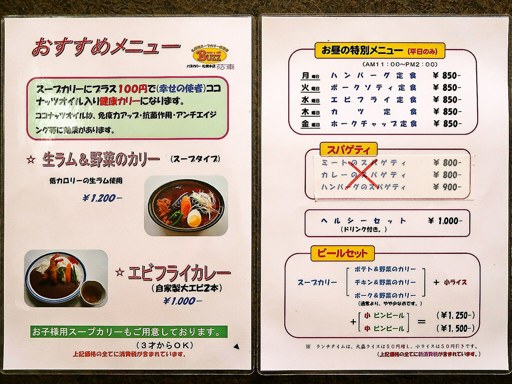 おすすめメニュー
スープカリーにプラス100円で(幸せの使者)ココ
ナッツオイル入り健康カリーになります。
ココナッツオイルは、免疫力アップ・抗菌作用・アンチエイジ
ング等に効果があります。
☆ 生ラム&野菜のカリー (スープタイプ)
低カロリーの生ラム使用
¥1,200-
☆ エビフライカレー
(自家製大エビ2本)
¥1,000-
お子様用スープカリーもご用意しております。
(3才からOK)
上記価格の全てに消費税が含まれています。
お昼の特別メニュー (平日のみ)
(AM11:00~PM2:00)
月曜日 ハンバーグ定食 ¥850-
火曜日 ポークソティ定食 ¥850-
水曜日 エビフライ定食 ¥850-
木曜日 カツ定食 ¥850-
金曜日 ホークチャップ定食 ¥850-
スパゲティ
ミートのスパゲティ ¥800-
カレーのスパゲティ ¥800-
ハンバーグのスパゲティ ¥900-
ヘルシーセット ¥1,000-
(ドリンク付き。)
ビールセット
ポテト&野菜のカリー
スープカリー チキン&野菜のカリー + 小ライス
ポーク&野菜のカリー
(通常より、やや少なめです。)
+ 小 ビンビール = (¥1,250-)
中 ビンビール (¥1,500-)
※ ランチタイムは、大盛ライスは50円増し、小ライスは50円引きです。
(上記価格の全てに消費税が含まれています。)